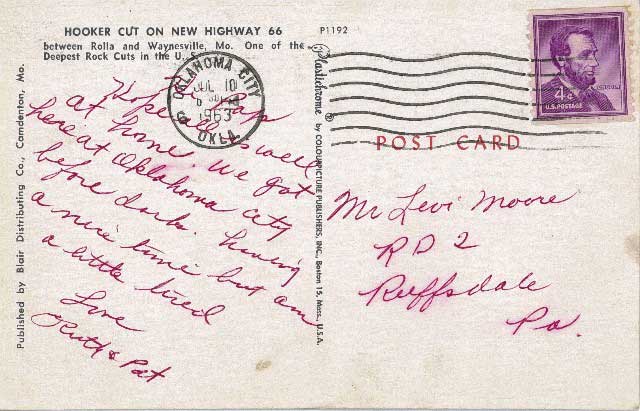 HOOKER CUT ON NEW HIGHWAY 66
between Rolla and Waynesville, Mo. One of the
Deepest Rock Cuts in the U.S.
P1192
OKLAHOMA CITY
JUL 10
1963
OKLA.
4¢
U.S. POSTAGE
LINCOLN
Hi Pap
Hope all is well
at home. We got
here at Oklahoma City
before dark. Having
a nice time but am
a little tired
Love
Ruth & Pat
Published by Blair Distributing Co., Camdenton, Mo.
Plastichrome ® by COLOURPICTURE PUBLISHERS, INC., Boston 15, Mass., U.S.A.
POST CARD
Mr Levi Moore
RD 2
Ruffsdale
Pa.